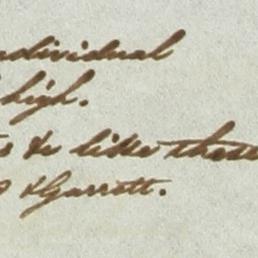 individual
high.
to be like these
& Garrett.